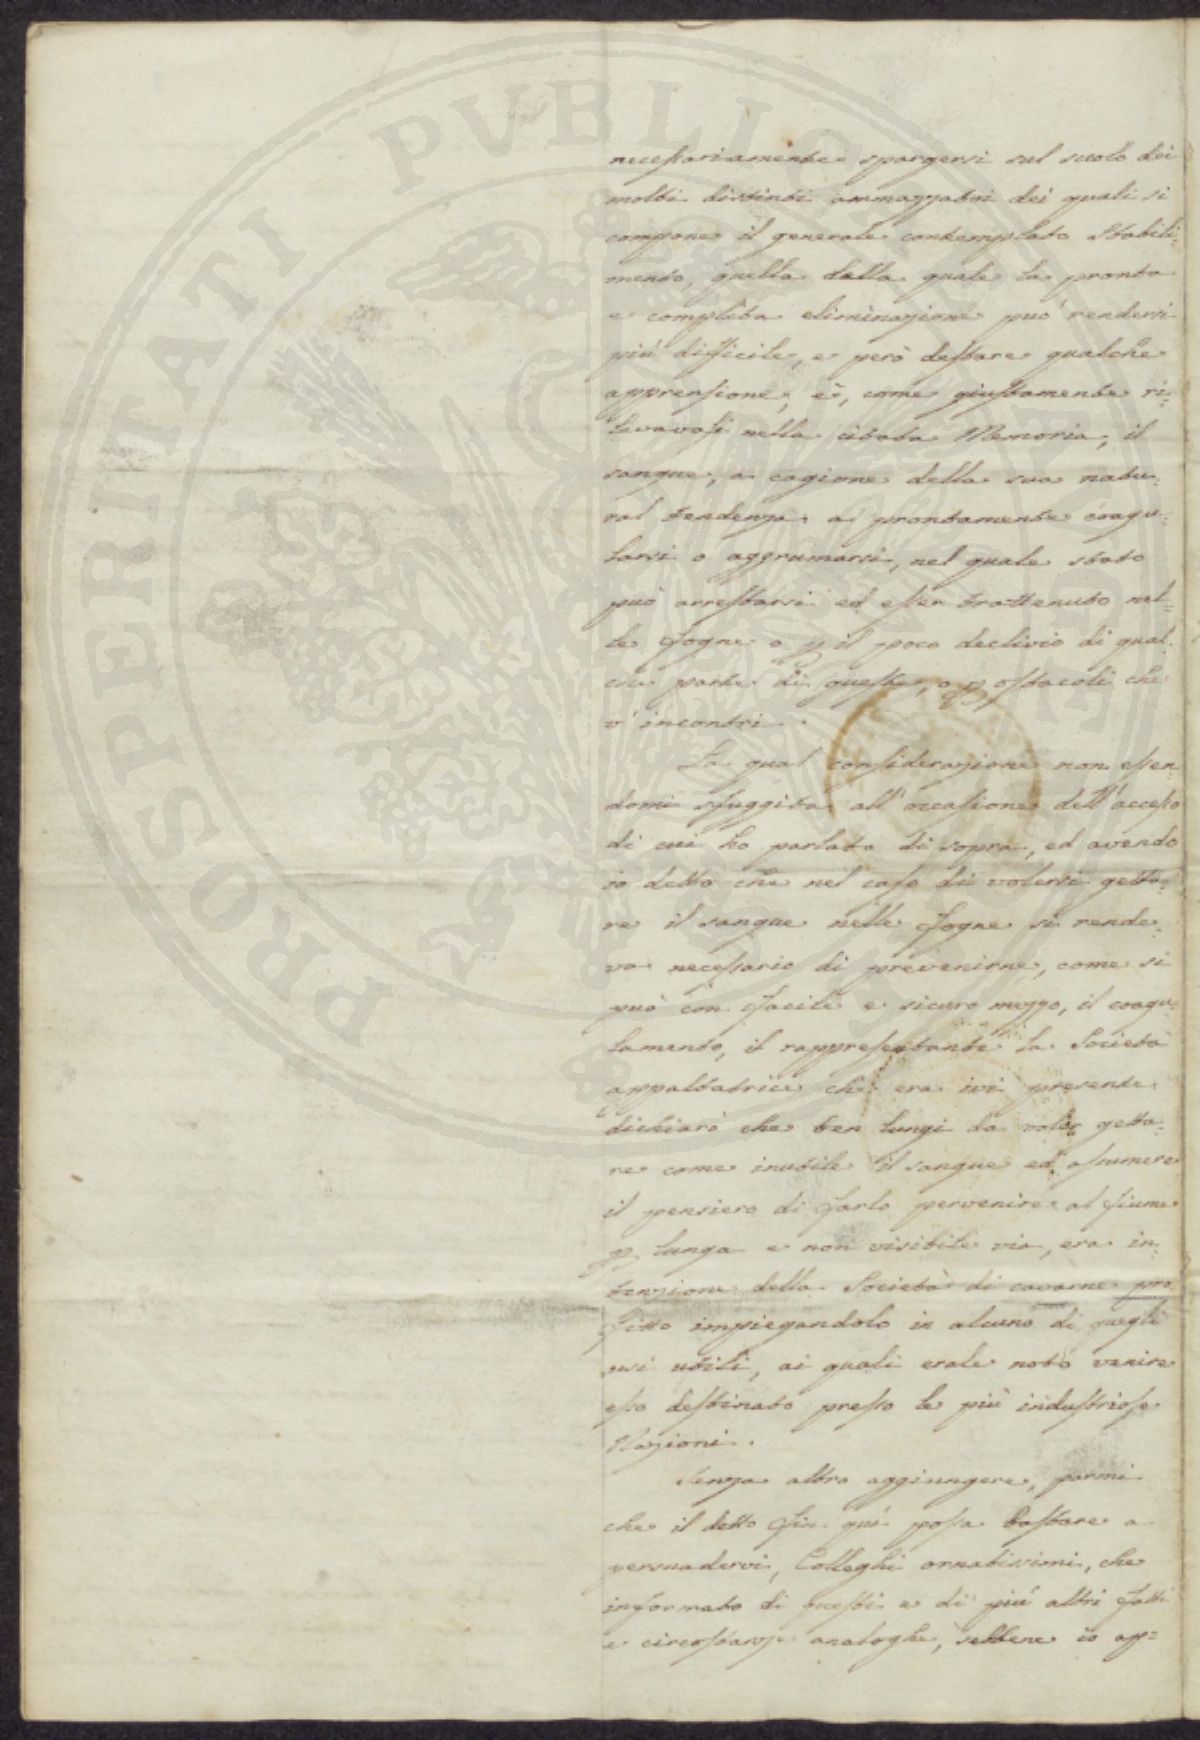 necessariamente spargersi sul suolo dei
molti distinti ammazzatoi dei quali si
compone il generale contemplato Stabili-
mento, quella dalla quale la pronta
e completa eliminazione può rendersi
più difficile, e però destare qualche
apprensione, è, come giustamente ri-
levavasi nella citata Memoria, il
sangue, a cagione della sua natu-
ral tendenza a prontamente coagu-
larsi o aggrumarsi, nel quale stato
può arrestarsi ed esser trattenuto nel-
le fogne o p il poco declivio di qual-
che parte di queste, o p ostacoli che
v'incontri.
La qual considerazione non essen-
domi sfuggita all'occasione dell'accesso
di cui ho parlato di sopra, ed avendo
io detto che nel caso di volersi getta-
re il sangue nelle fogne si rende-
va necessario di prevenirne, come si
può con facile e sicuro mezzo, il coagu-
lamento, il rappresentante la Società
appaltatrice che era ivi presente
dichiarò che ben lungi da voler getta-
re come inutile il sangue ed assumere
il pensiero di farlo pervenire al fiume
p lunga e non visibile via, era in-
tenzione della Società di cavarne pro
fitto impiegandolo in alcuno di quegli
usi utili, ai quali erale noto venire
esso destinato presso le più industriose
Nazioni.
Senza altro aggiungere, parmi
che il detto fin quì possa bastare a
persuadervi, Colleghi ornatissimi, che
informato di questi e di più altri fatti
e circostanze analoghe, sebbene io ap-
PROSPERITATI PUBLICAE